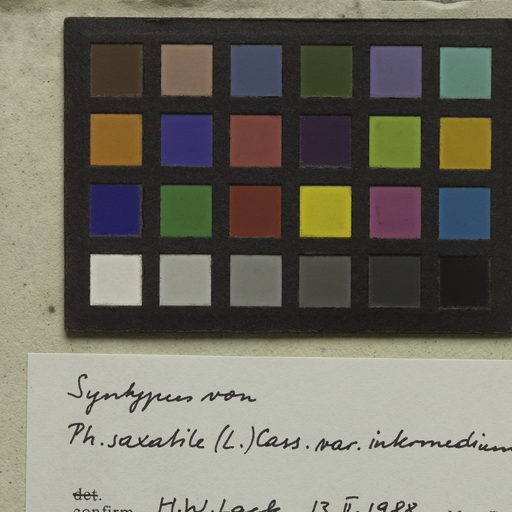 Syntypus von
Ph. saxatile (L.) Cass. var. intermedium
det.
confirm. H.W. Lack 13.II.1988